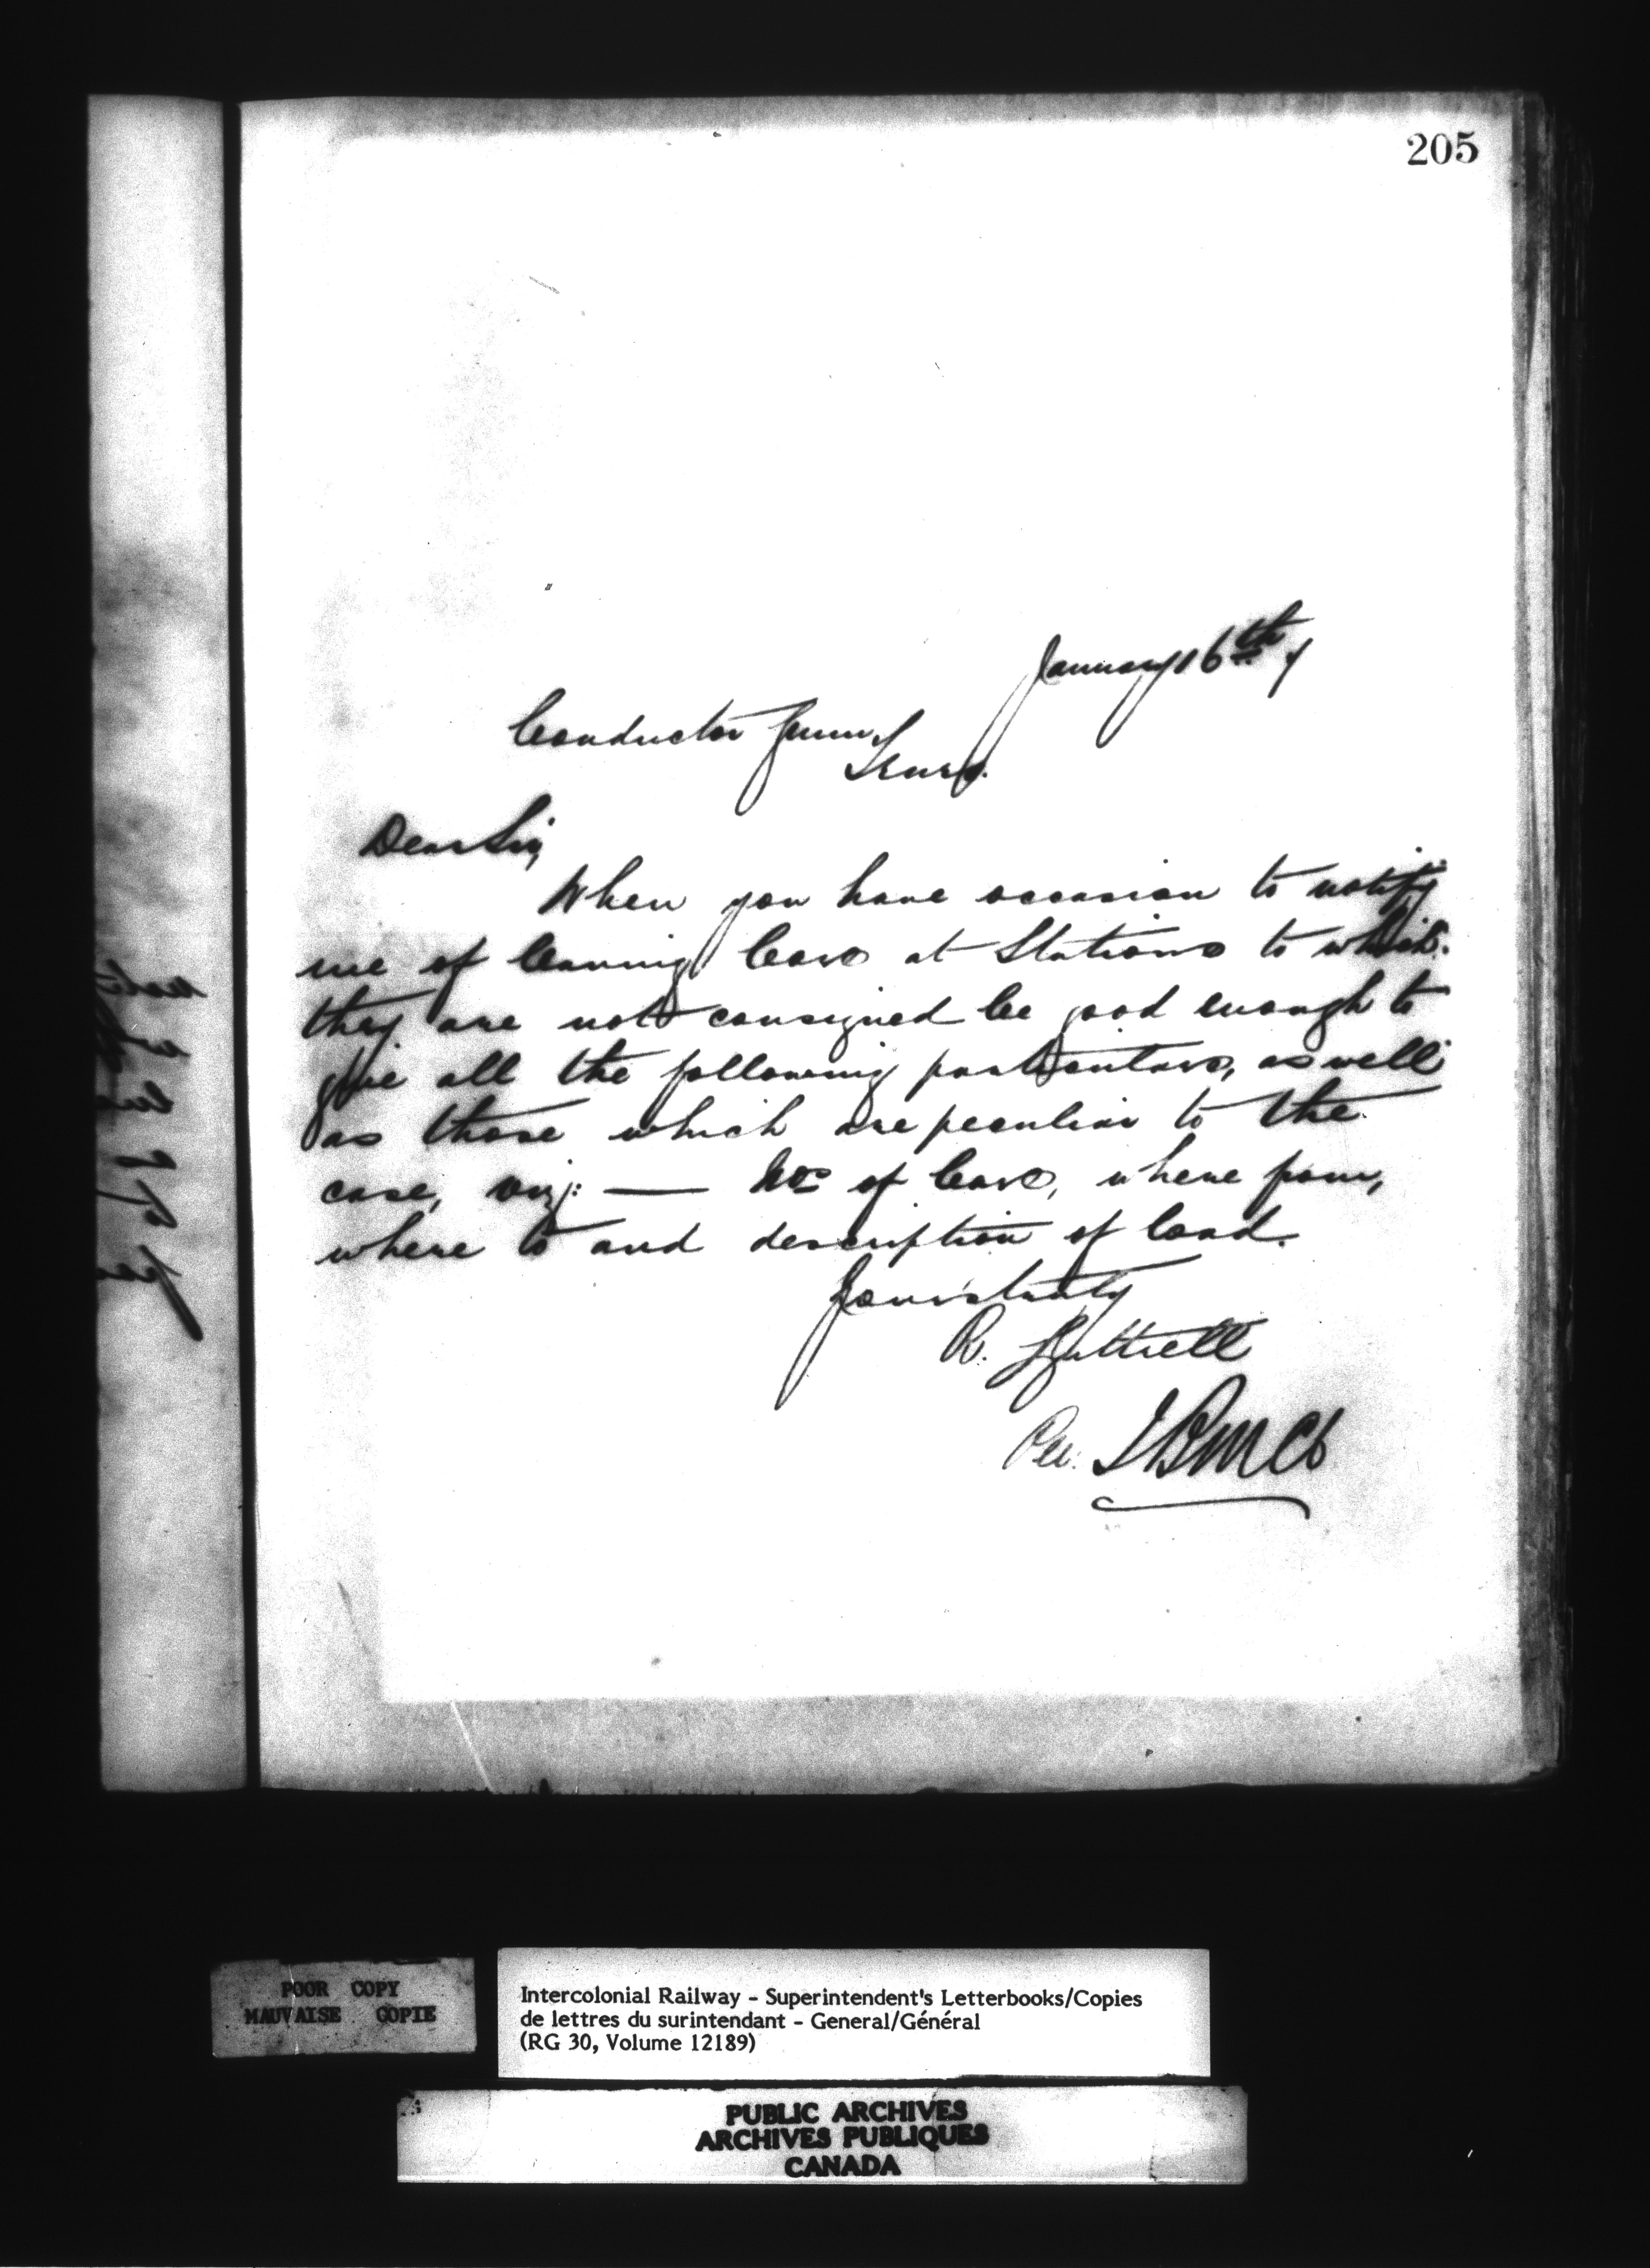 205
January 16th
Conductor
Truro.
Dear Sir,
When you have occasion to notify
me of leaving Cars at Stations to which
they are not consigned be good enough to
give all the following particulars, as well
as those which are peculiar to the
case, viz: — Nos of Cars, where from,
where to and description of load.
Yours truly
R. Luttrell
Per.
POOR COPY
MAUVAISE COPIE
Intercolonial Railway - Superintendent's Letterbooks/Copies
de lettres du surintendant - General/Général
(RG 30, Volume 12189)
PUBLIC ARCHIVES
ARCHIVES PUBLIQUES
CANADA